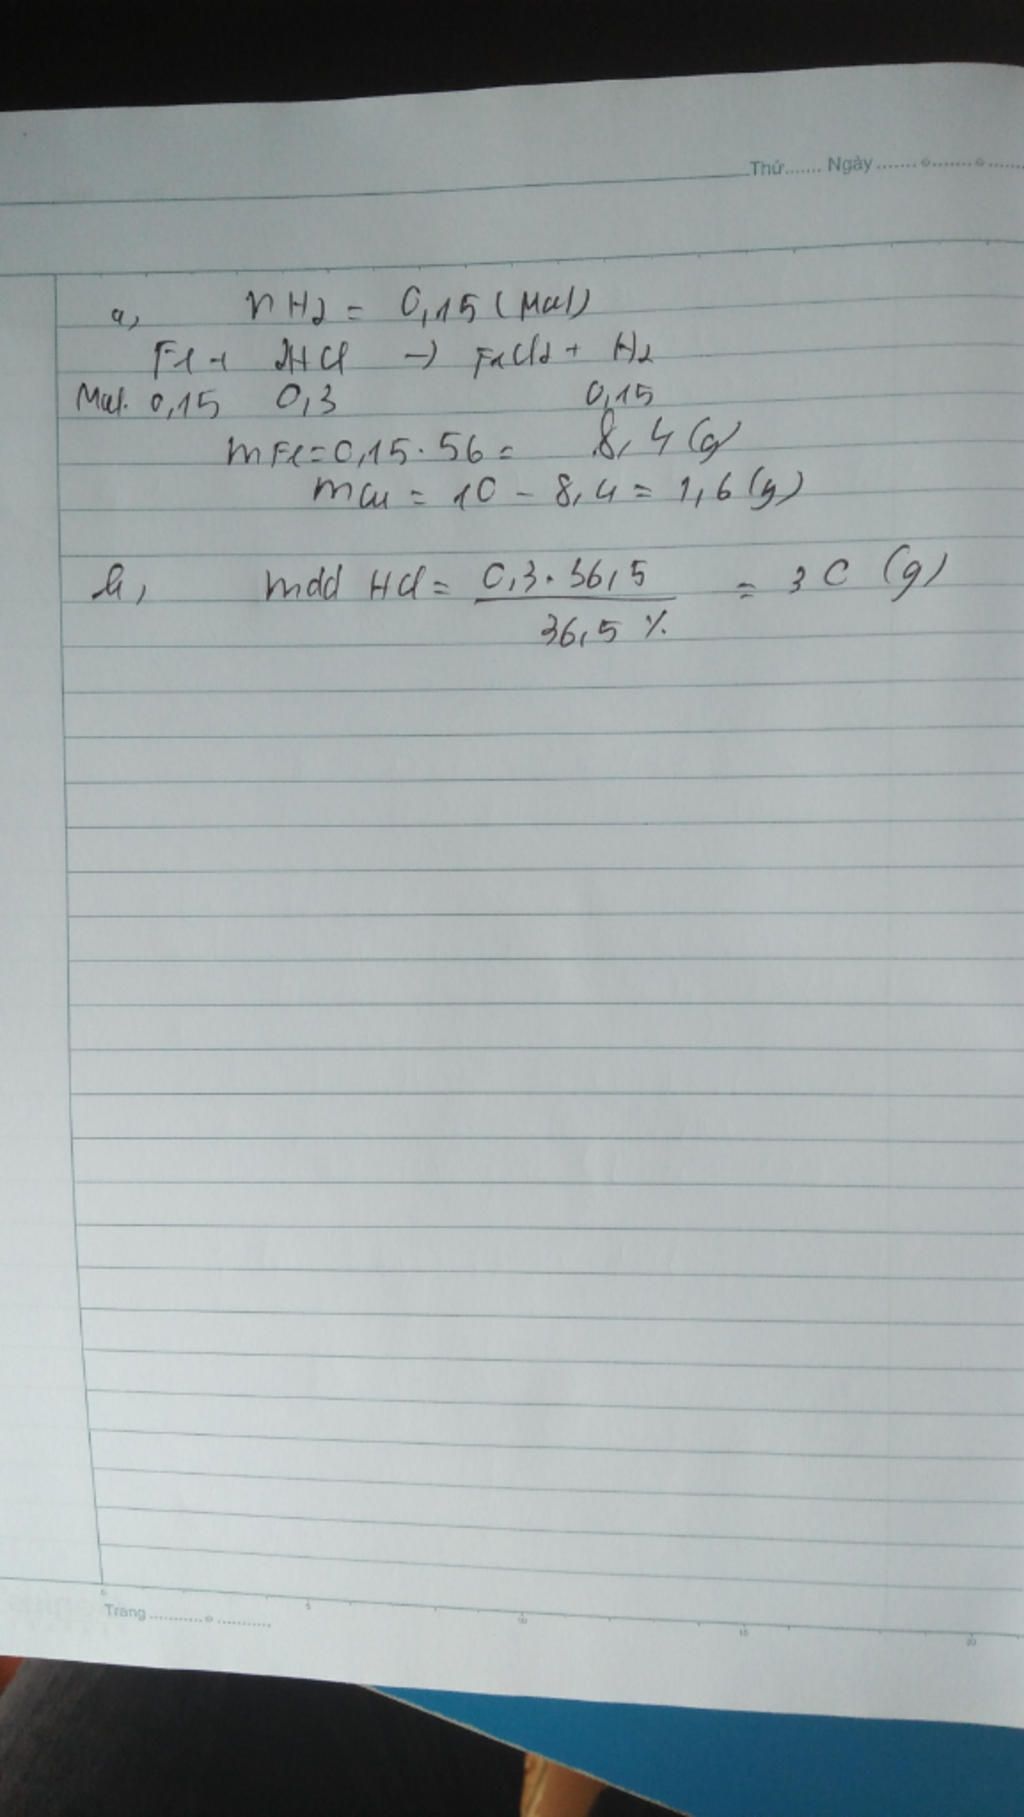 Thứ....... Ngày
a, nH2 = 0,15 (Mol)
Fe + 2HCl → FeCl2 + H2
Mol. 0,15 0,3 0,15
mFe = 0,15 . 56 = 8,4 (g)
mCu = 10 - 8,4 = 1,6 (g)
b, mdd HCl = 0,3 . 36,5 / 36,5 % = 30 (g)
Trang
5 10 15 20